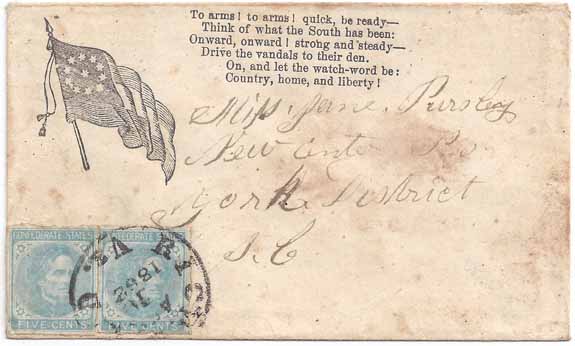 To arms! to arms! quick, be ready—
Think of what the South has been:
Onward, onward! strong and steady—
Drive the vandals to their den.
On, and let the watch-word be:
Country, home, and liberty!
Miss Jane Pursley
New
York District
S. C
CONFEDERATE STATES
CONFEDERATE STATES
RIC D VA.
1862
FIVE CENTS
FIVE CENTS